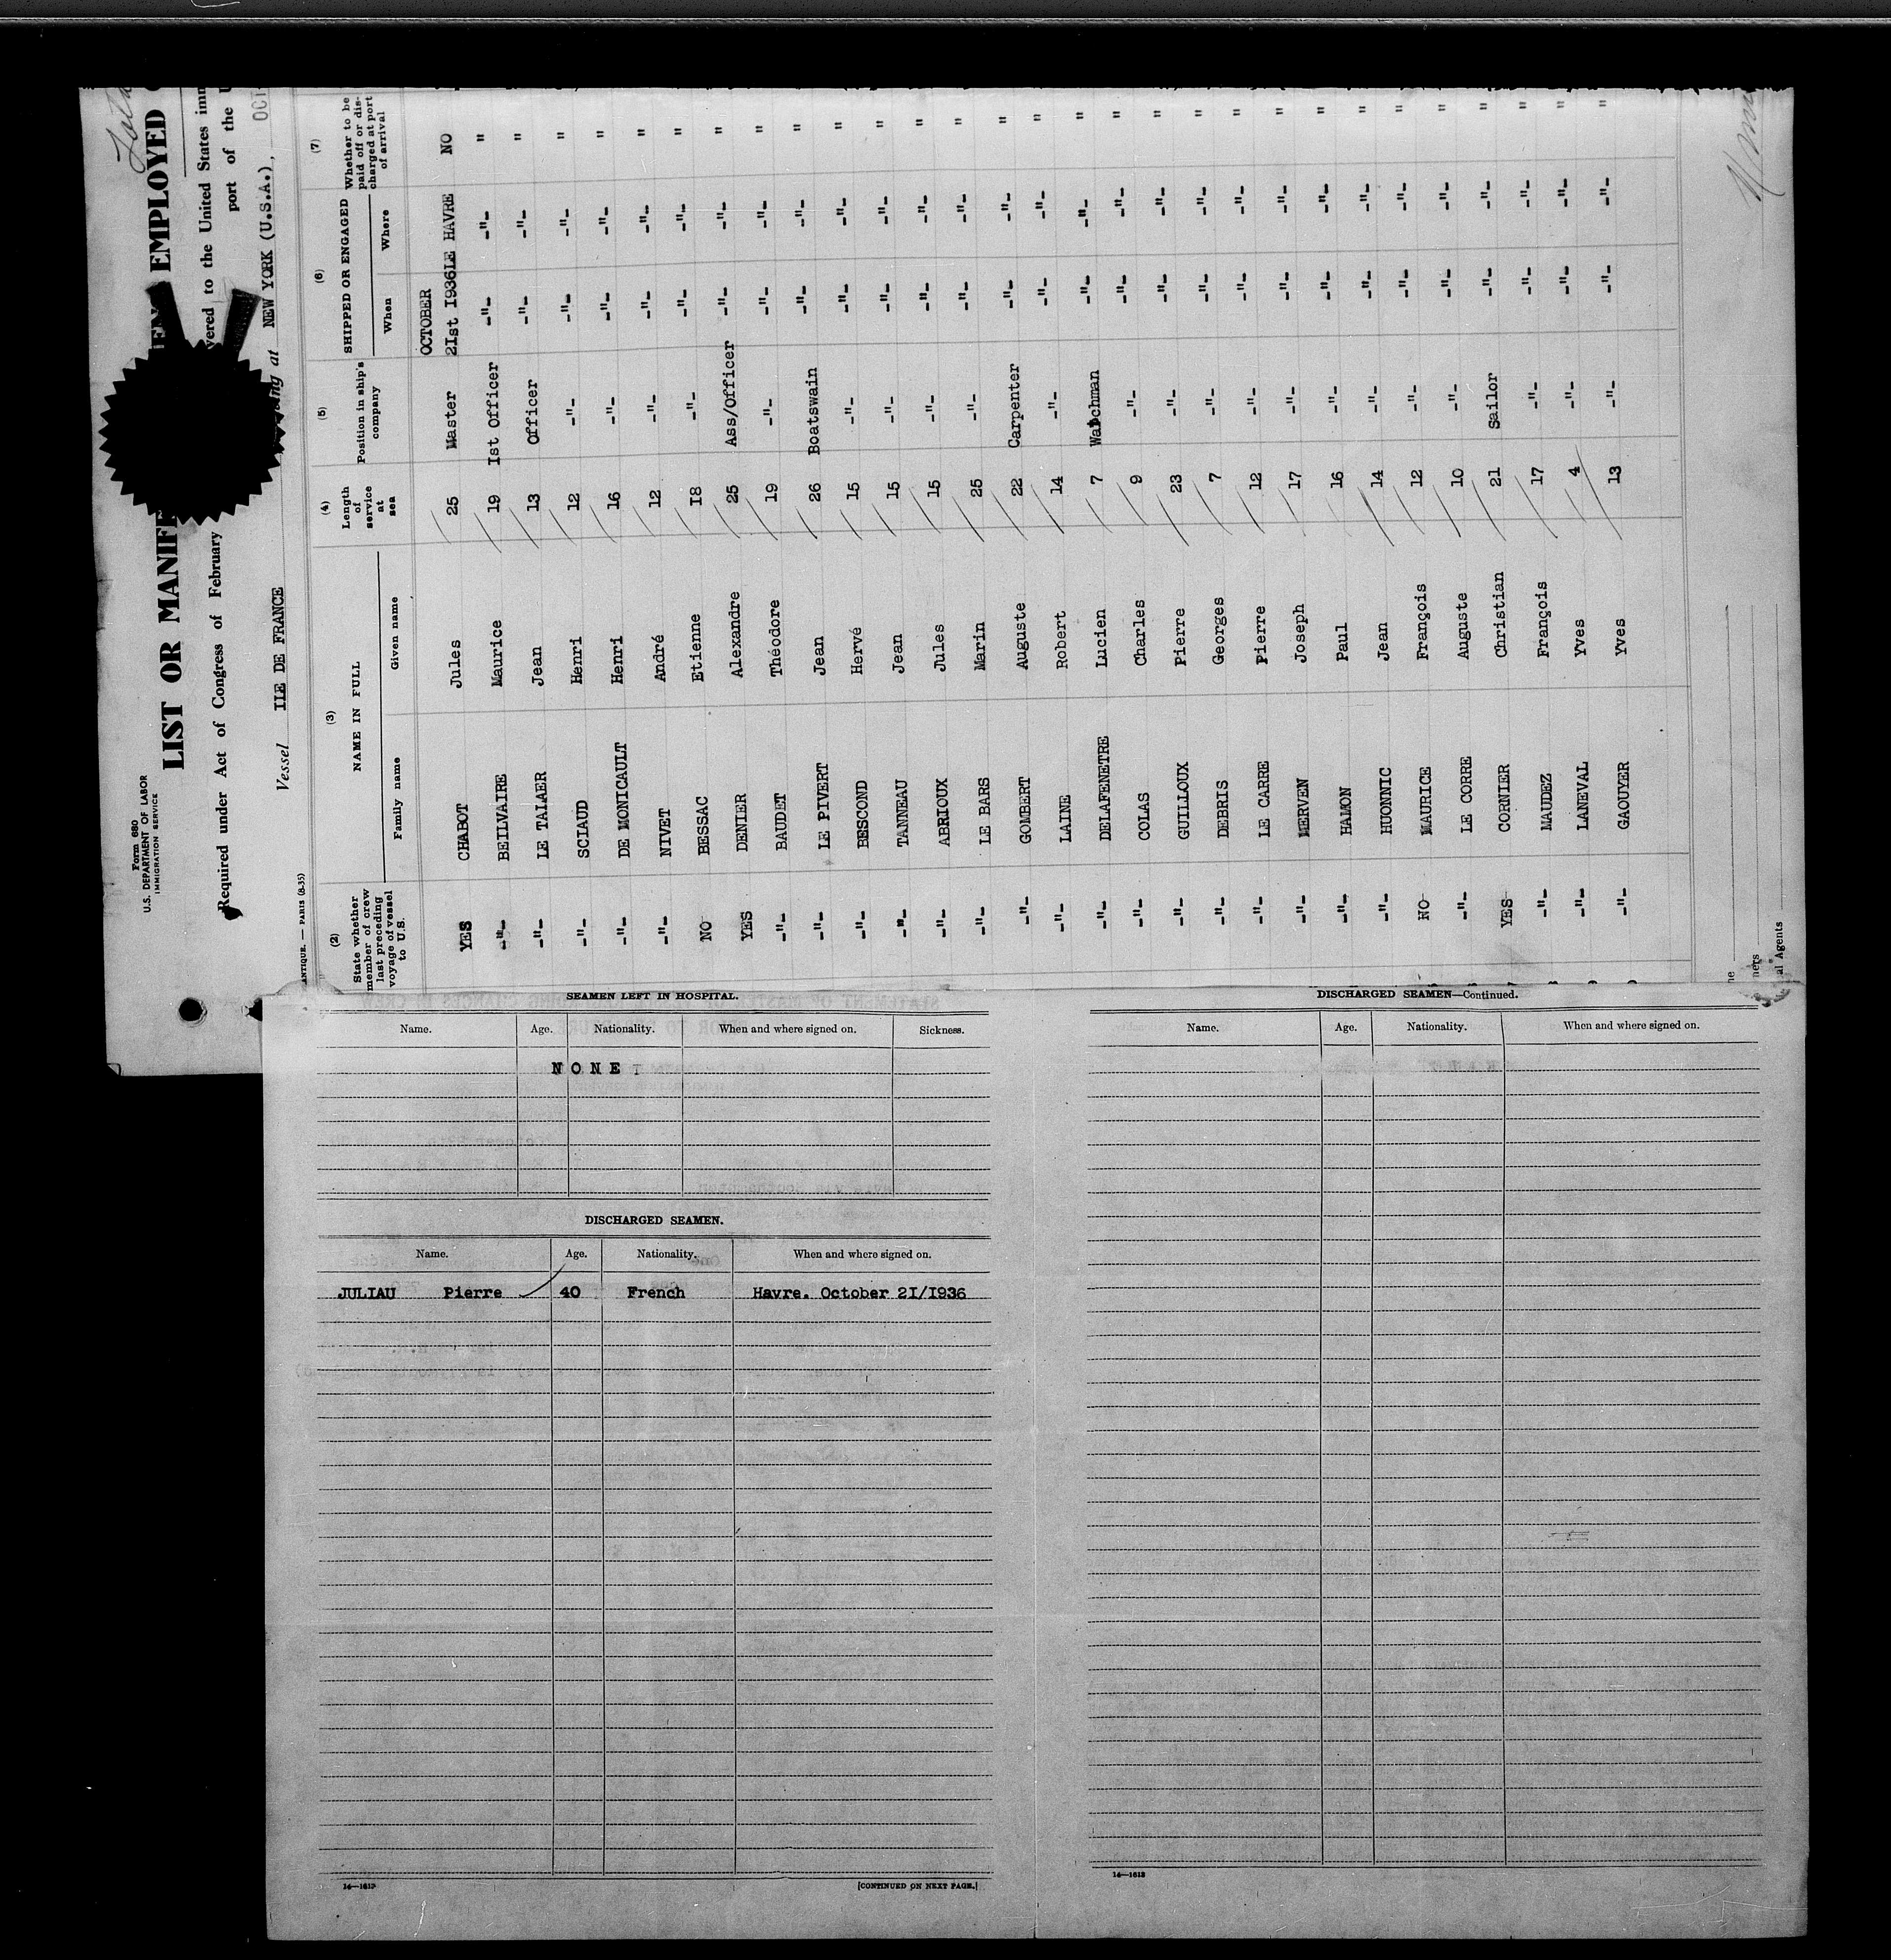 Form 680
U.S. DEPARTMENT OF LABOR
IMMIGRATION SERVICE
LIST OR MANIF EMPLOYED
Required under Act of Congress of February vered to the United States imm
port of the U
Vessel IIE DE FRANCE at NEW YORK (U.S.A.), OCT
ANTIQUE. — PARIS (8-35)
(2) (3) (4) (5) (6) (7)
State whether member of crew last preceding voyage of vessel to U.S. NAME IN FULL Length of service at sea Position in ship's company SHIPPED OR ENGAGED Whether to be paid off or discharged at port of arrival
Family name Given name When Where
OCTOBER
YES CHABOT Jules 25 Master 2Ist I936 LE HAVRE NO
-"- BEILVAIRE Maurice 19 Ist Officer -"- -"- "
-"- LE TALAER Jean 13 Officer -"- -"- "
-"- SCIAUD Henri 12 -"- -"- -"- "
-"- DE MONICAULT Henri 16 -"- -"- -"- "
-"- NIVET André 12 -"- -"- -"- "
NO BESSAC Etienne I8 -"- -"- -"- "
YES DENIER Alexandre 25 Ass/Officer -"- -"- "
-"- BAUDET Théodore 19 -"- -"- -"- "
-"- LE PIVERT Jean 26 Boatswain -"- -"- "
-"- BESCOND Hervé 15 -"- -"- -"- "
-"- TANNEAU Jean 15 -"- -"- -"- "
-"- ABRIOUX Jules 15 -"- -"- -"- "
-"- LE BARS Marin 25 -"- -"- -"- "
-"- GOMBERT Auguste 22 Carpenter -"- -"- "
-"- LAINE Robert 14 -"- -"- -"- "
-"- DELAFENETRE Lucien 7 Watchman -"- -"- "
-"- COLAS Charles 9 -"- -"- -"- "
-"- GUILLOUX Pierre 23 -"- -"- -"- "
-"- DEBRIS Georges 7 -"- -"- -"- "
-"- LE CARRE Pierre 12 -"- -"- -"- "
-"- MERVEN Joseph 17 -"- -"- -"- "
-"- HAMON Paul 16 -"- -"- -"- "
-"- HUONNIC Jean 14 -"- -"- -"- "
NO MAURICE François 12 -"- -"- -"- "
-"- LE CORRE Auguste 10 -"- -"- -"- "
YES CORNIER Christian 21 Sailor -"- -"- "
-"- MAUDEZ François 17 -"- -"- -"- "
-"- LANEVAL Yves 4 -"- -"- -"- "
-"- GAOUYER Yves 13 -"- -"- -"- "
al Agents
SEAMEN LEFT IN HOSPITAL.
Name. Age. Nationality. When and where signed on. Sickness.
NONE
DISCHARGED SEAMEN.
Name. Age. Nationality. When and where signed on.
JULIAU Pierre 40 French Havre. October 2I/I936
14—1613 [CONTINUED ON NEXT PAGE.]
DISCHARGED SEAMEN—Continued.
Name. Age. Nationality. When and where signed on.
14—1613